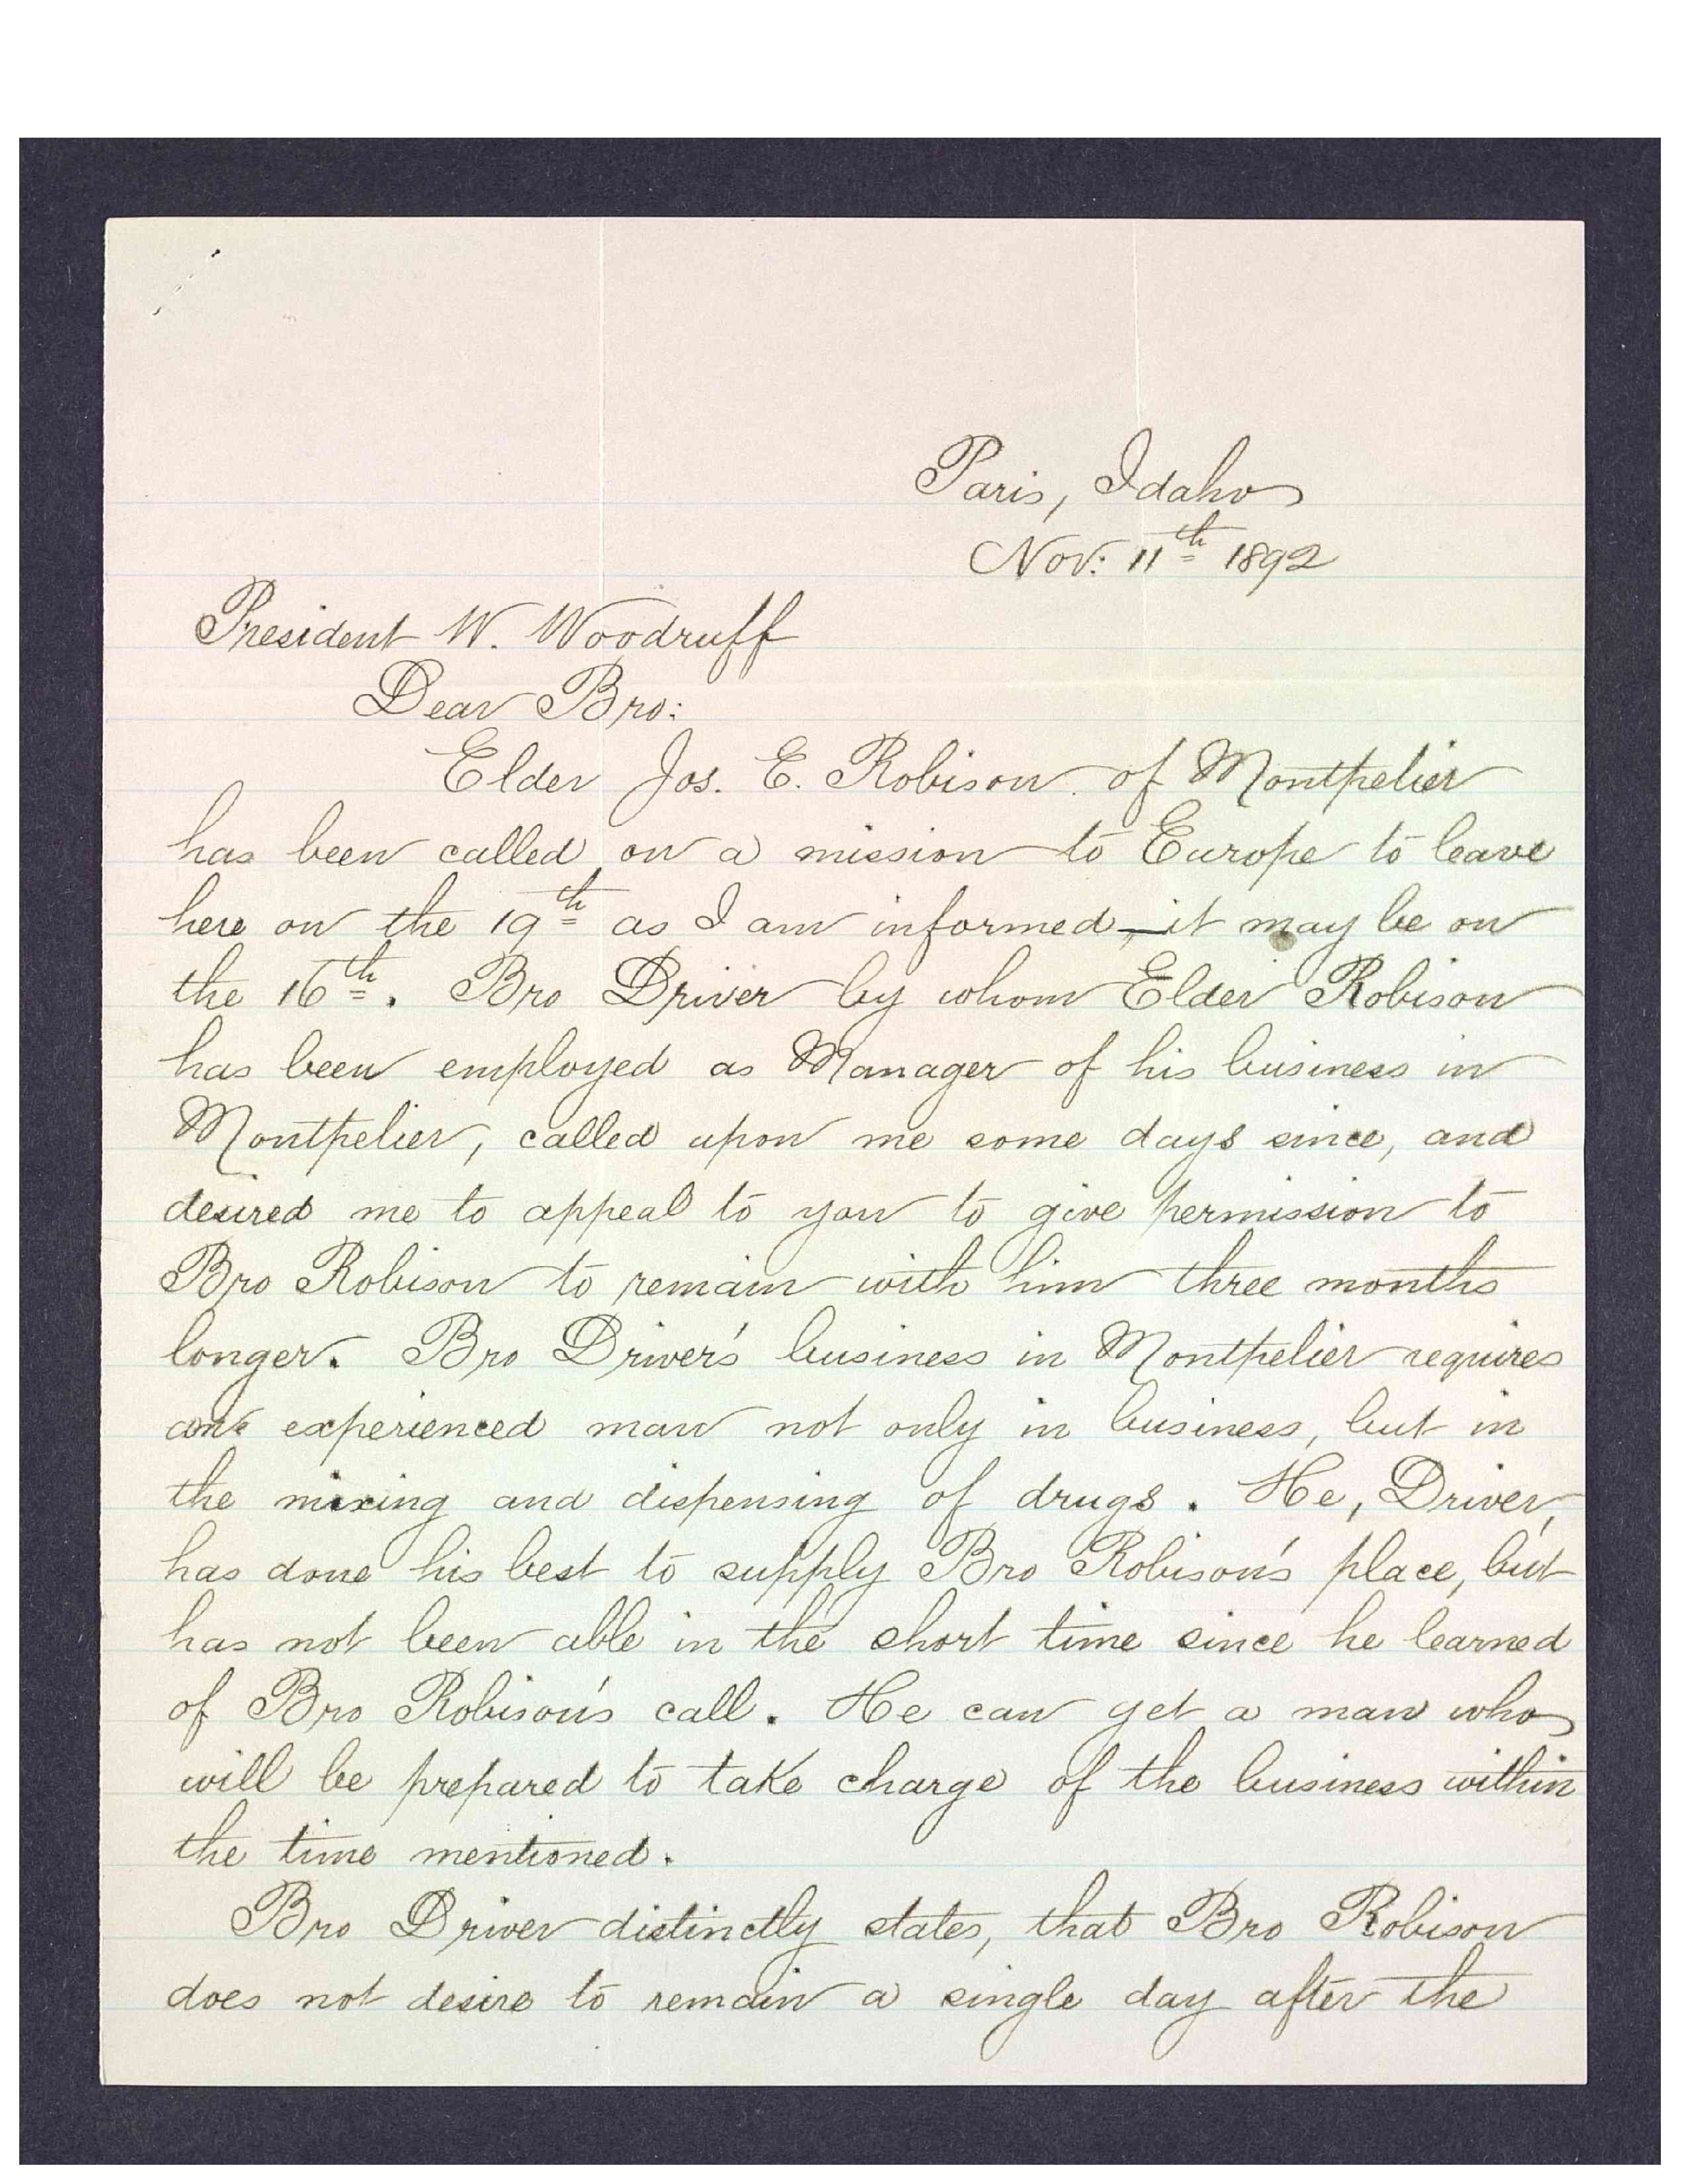 Paris, Idaho
Nov: 11th 1892
President W. Woodruff
Dear Bro:
Elder Jos. E. Robison of Montpelier
has been called on a mission to Europe to leave
here on the 19th as I am informed, — it may be on
the 16th. Bro Driver by whom Elder Robison
has been employed as Manager of his business in
Montpelier, called upon me some days since, and
desired me to appeal to you to give permission to
Bro Robison to remain with him three months
longer. Bro Driver's business in Montpelier requires
an experienced man not only in business, but in
the mixing and dispensing of drugs. He, Driver,
has done his best to supply Bro Robison's place, but
has not been able in the short time since he learned
of Bro Robison's call. He can get a man who
will be prepared to take charge of the business within
the time mentioned.
Bro Driver distinctly states, that Bro Robison
does not desire to remain a single day after the